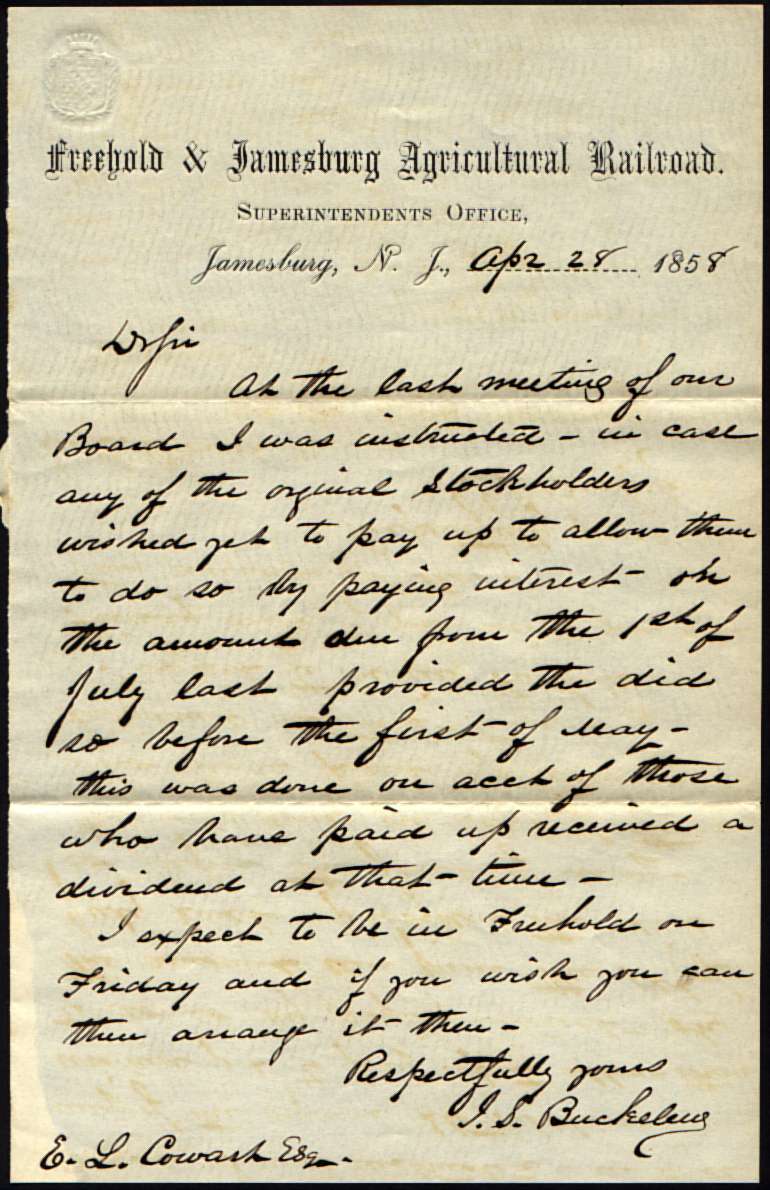 Freehold & Jamesburg Agricultural Railroad.
SUPERINTENDENTS OFFICE,
Jamesburg, N. J., Apr 28 1858
Dr Sir
At the last meeting of our
Board I was instructed - in case
any of the orginal Stockholders
wished yet to pay up to allow them
to do so by paying interest on
the amount due from the 1st of
July last provided the did
so before the first of May -
this was done on acct of those
who have paid up received a
dividend at that time -
I expect to be in Freehold on
Friday and if you wish you can
then arrange it then -
Respectfully yours
I. S. Buckelew
E. L. Cowart Esq.